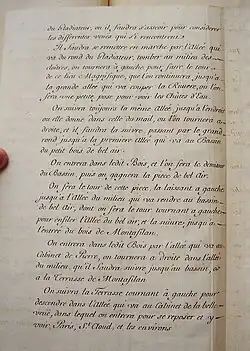 du Gladiateur, ou il faudra s'asseoir pour considerer
les differentes vouës qui s'i rencontrent.
Il faudra se remettre en marche par l'Allée qui
va du rond du Gladiateur, tomber au milieu des
ou l'on tournera à gauche pour faire le tour
de ce lieu Magnifique, que l'on continuera jusqu'à
la grande allée qui va couper la Riviere, ou l'on
fera une pause, pour voir les Chutes d'Eau.
On suivra toujours la même Allée jusqu'à l'endroit
ou elle donne dans celle du mail, ou l'on tournera a
droite, et il faudra la suivre, passant par le grand
rond jusqu'à la premiere Allée qui va au Bassin
du petit bois de bel air.
On entrera dans ledit Bois, et l'on fera le demitour
du Bassin, puis on gagnera la piece de bel Air.
On fera le tour de cette piece, la laissant a gauche
jusqu'à l'allée du milieu qui va rendre au bassin
de bel Air, dont on fera le tour, tournant a gauche
pour enfiler l'Allée du bel air, et la suivre jusqu'à
l'entrée du bois de Montafilan.
On entrera dans ledit Bois par l'allée qui va au
Cabinet de Pierre, on tournera a droite dans l'allée
du milieu, qu'il faudra suivre jusqu'au bassin, et
a la Terrasse de Montafilan
On suivra la Terrasse tournant à gauche pour
descendre dans l'Allée qui va au Cabinet de la belle
vouë, dans lequel on entrera pour se reposer et y
voir, Paris, St. Cloud, et les environs